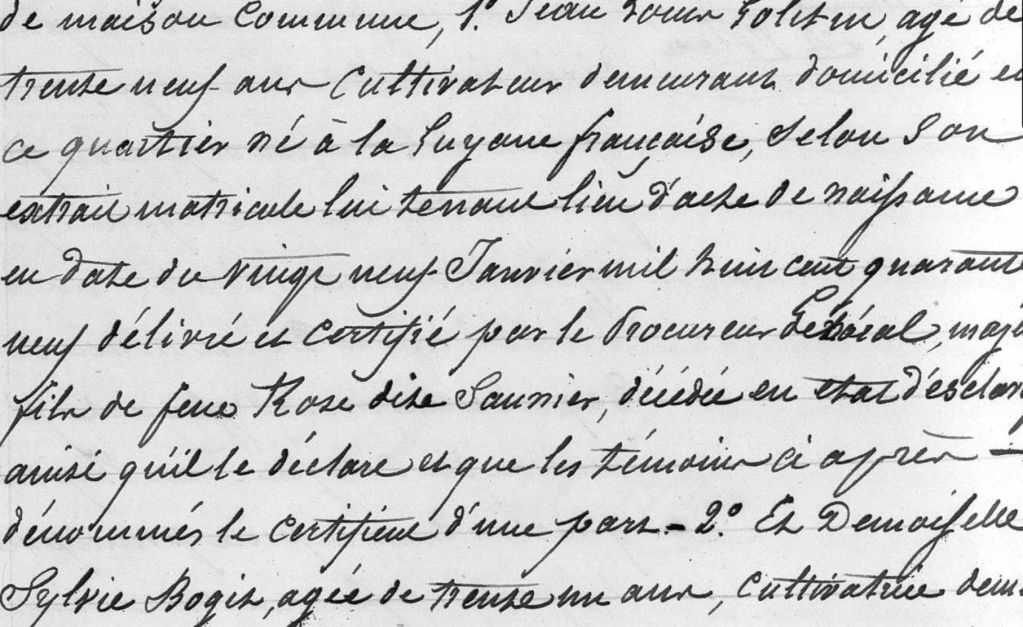 de maison commune, 1º Jean Louis agé de
trente neuf ans Cultivateur demeurant domicilié en
ce quartier né à la Guyane française, selon son
extrait matricule lui tenant lieu d'acte de naissance
en date du vingt neuf Janvier mil huit cent quarante
neuf délivré et certifié par le Procureur Général, maj
fils de feue Rose dite Saunier, décédée en etat d'esclav
ainsi qu'il le déclare et que les témoins ci après —
dénommés le certifient d'une part - 2º. Et Demoiselle
Sylvie Bogis, agée de trente un ans, Cultivatrice dem.